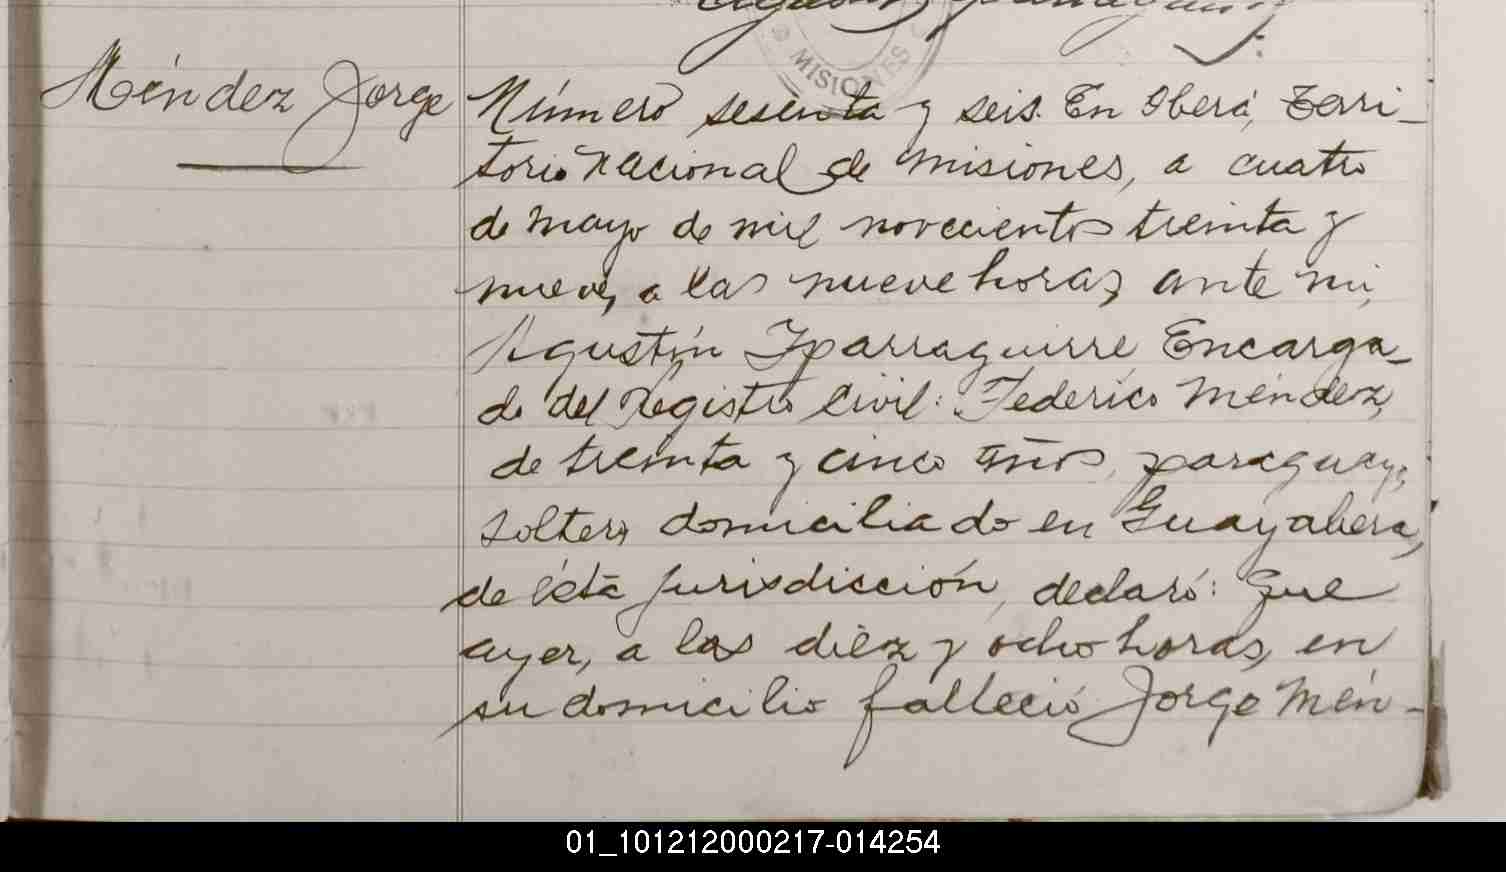 Agustín Iparraguirre
MISIONES
Méndez Jorge
Número sesenta y seis. En Oberá, Terri-
torio Nacional de Misiones, a cuatro
de mayo de mil novecientos treinta y
nueve, a las nueve horas, ante mi,
Agustín Iparraguirre Encarga-
do del Registro Civil: Federico Méndez,
de treinta y cinco años, paraguayo,
soltero, domiciliado en Guayabera,
de ésta jurisdicción, declaró: Que
ayer, a las diez y ocho horas, en
su domicilio falleció Jorge Mén-
01_101212000217-014254